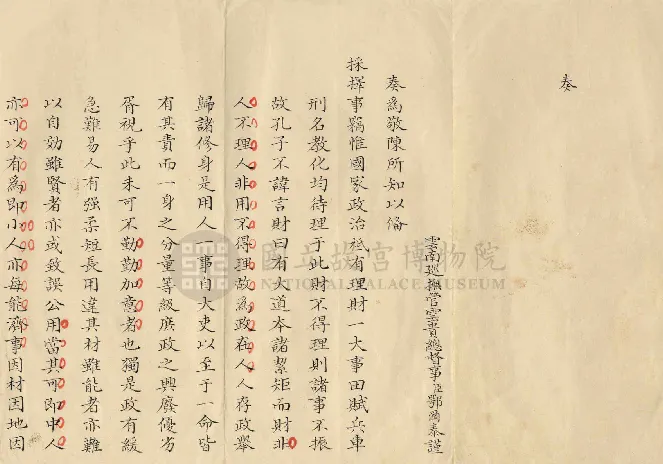 奏
雲南巡撫管雲貴總督事臣鄂爾泰謹
奏為敬陳所知以備
採擇事竊惟國家政治祗有理財一大事田賦兵車
刑名教化均待理于此財不得理則諸事不振
故孔子不諱言財曰有大道本諸絜矩而財非
人不理人非用不得理故為政在人人存政舉
歸諸修身是用人一事自大吏以至于一命皆
有其責而一身之分量等級庶政之興廢優劣
胥視乎此未可不勤勤加意者也獨是政有緩
急難易人有强柔短長用違其材雖能者亦難
以自効雖賢者亦或致誤公用當其可即中人
亦可以有為即小人亦每能濟事因材因地因
國立故宮博物院
NATIONAL PALACE MUSEUM